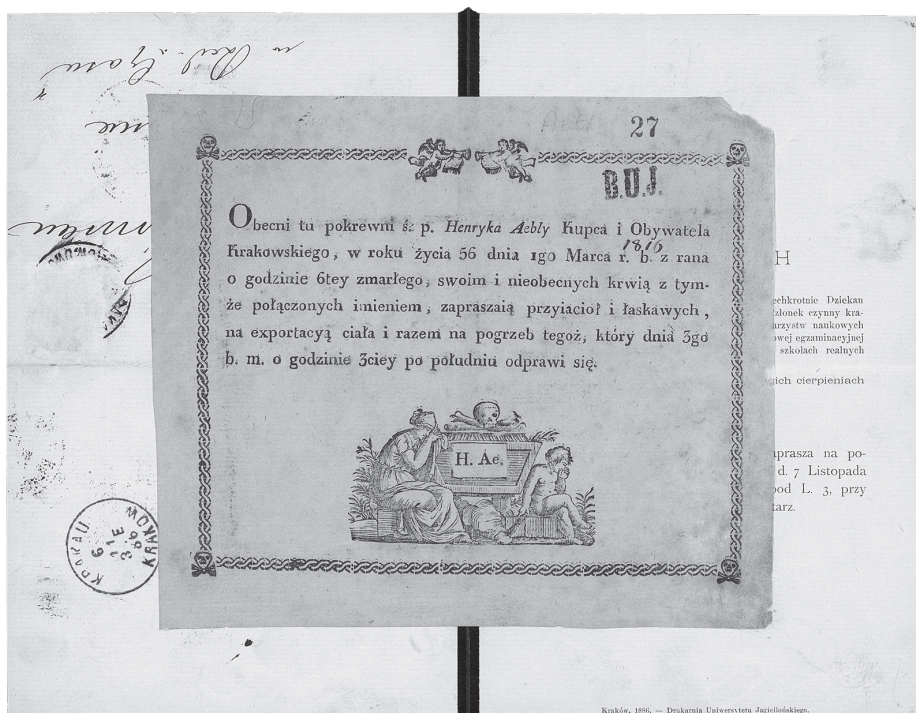 27
B.U.J.
Obecni tu pokrewni ś. p. Henryka Aebly Kupca i Obywatela
1816
Krakowskiego, w roku życia 56 dnia 1go Marca r. b. z rana
o godzinie 6tey zmarłego, swoim i nieobecnych krwią z tym-
że połączonych imieniem, zapraszaią przyiacioł i łaskawych,
na exportacyą ciała i razem na pogrzeb tegoż, który dnia 3go
b. m. o godzinie 3ciey po południu odprawi się.
H. Ae.
H
echkrotnie Dziekan
członek czynny kra-
arzystw naukowych
owej egzaminacyjnej
szkołach realnych
gich cierpieniach
aprasza na po-
d. 7 Listopada
pod L. 3, przy
tarz.
KRAKAU
KRAKOW
Kraków, 1886. — Drukarnia Uniwersytetu Jagiellońskiego.